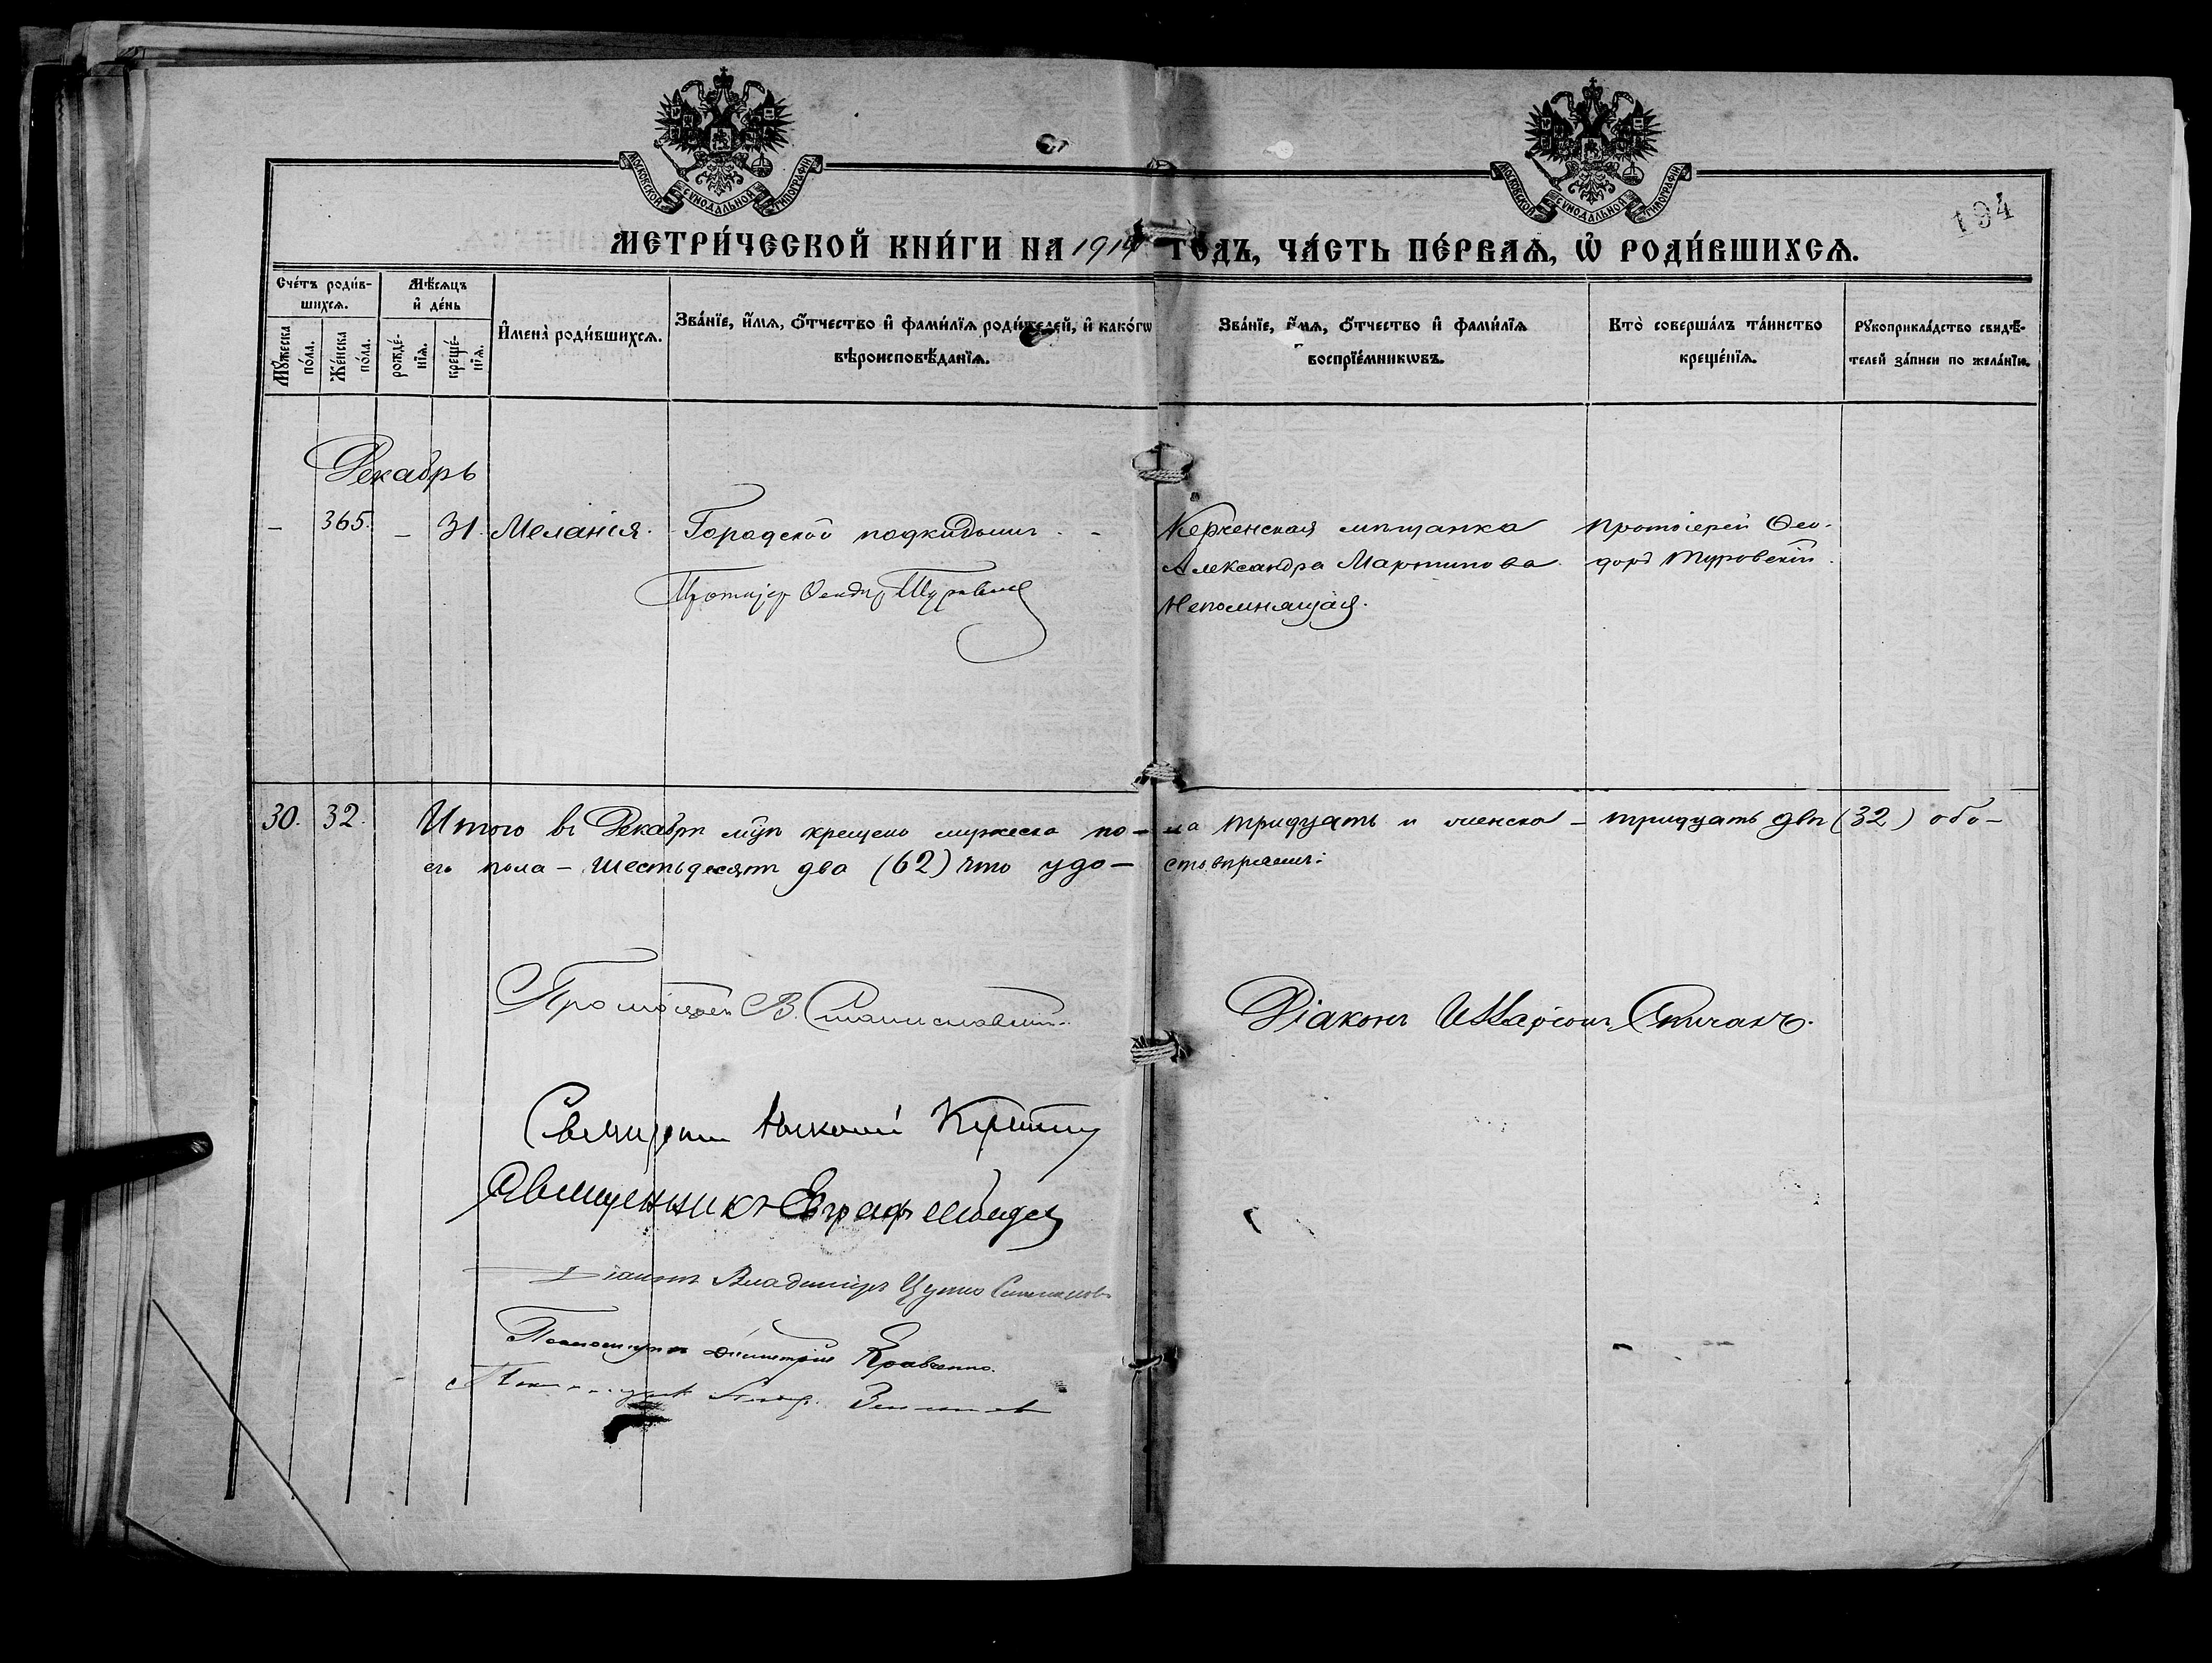 МОСКОВСКОЙ СѴНОДАЛЬНОЙ ТИПОГРАФІИ
МОСКОВСКОЙ СѴНОДАЛЬНОЙ ТИПОГРАФІИ
194
МЕТРИ́ЧЕСКОЙ КНИ́ГИ НА 1914 ГОДЪ, ЧА́СТЬ ПЕ́РВАѦ, Ѽ РОДИ́ВШИХСѦ.
Сче́тъ роди́в-
шихсѧ.
Мꙋжеска
по́ла.
Же́нска
по́ла.
Мѣ́сѧцъ
и҆ де́нь
рожде́-
нїѧ.
креще́-
нїѧ.
И҆мена̀ роди́вшихсѧ.
Зва́нїе, и҆́мѧ, ѻ҆́тчество и҆ фами́лїѧ роди́телей, и҆ како́гѡ
вѣроисповѣ́данїѧ.
Зва́нїе, и҆́мѧ, ѻ҆́тчество и҆ фами́лїѧ
воспрїе́мникѡвъ.
Кто̀ соверша́лъ та́инство
креще́нїѧ.
Рꙋкоприкла́дство свидѣ́-
телей за́писи по жела́нїю.
Декабрь
– 365. – 31. Меланія. Городской подкидышъ. – Керченская мѣщанка Протоіерей Ѳео-
Александра Мартинова доръ Туровскій.
Протоіер Ѳеодор Туровскій
Непомнящая.
30. 32. Итого въ Декабрѣ м-цѣ крещено мужеска по- ла тридцать и женска – тридцать двѣ (32) обо-
его пола – шестьдесятъ два (62) что удо- стовѣряемъ:
Протоіерей В. Станиславскій.
Діаконъ Илларіонъ
Священникъ Николай
Священникъ Евграфъ
Діаконъ Владиміръ
Псаломщикъ Димитрій Кравченко.
Псаломщикъ